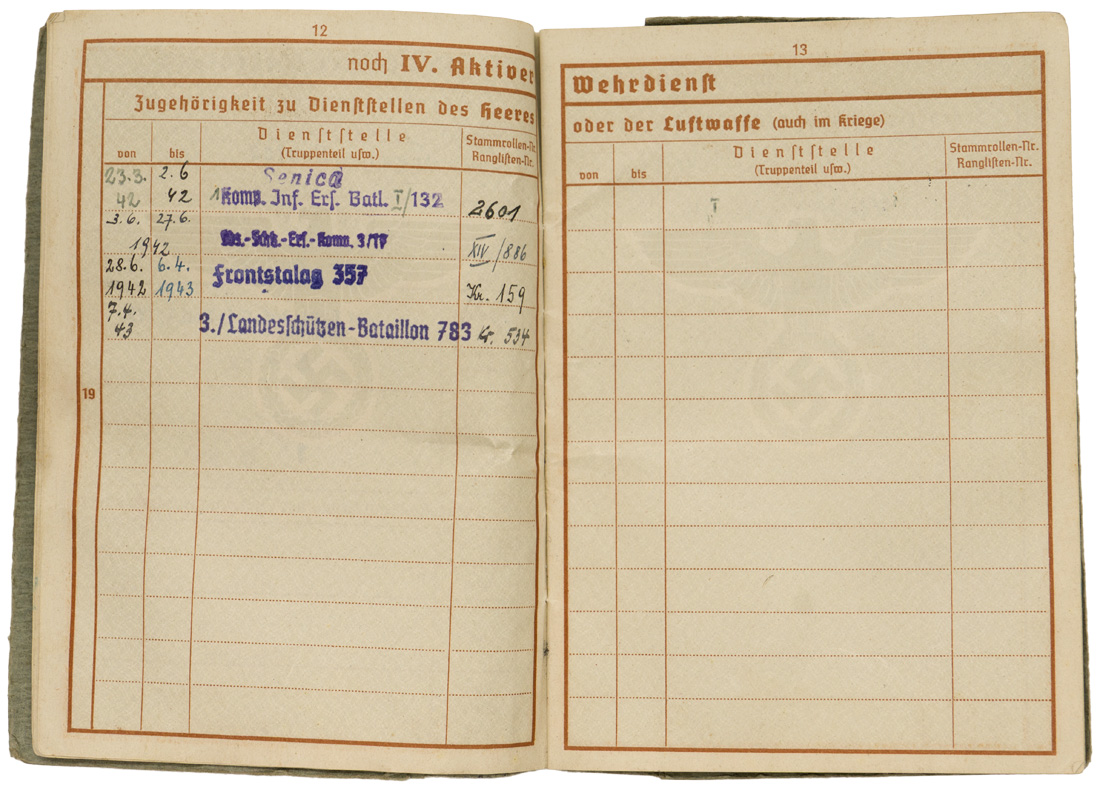 12
noch IV. Aktiver
Zugehörigkeit zu Dienststellen des Heeres
von
bis
Dienststelle
(Truppenteil usw.)
Stammrollen-Nr.
Ranglisten-Nr.
23.3. 2.6 Senica
42 42 1 Komp. Inf. Ers. Batl. I/132 2601
3.6. 27.6.
1942 -Ers.-Komp. 3/17 XIV/886
28.6. 6.4. Frontstalag 357
1942 1943 Kr. 159
7.4.
43 3./Landesschützen-Bataillon 783 Kr. 534
19
13
Wehrdienst
oder der Luftwaffe (auch im Kriege)
von
bis
Dienststelle
(Truppenteil usw.)
Stammrollen-Nr.
Ranglisten-Nr.
I